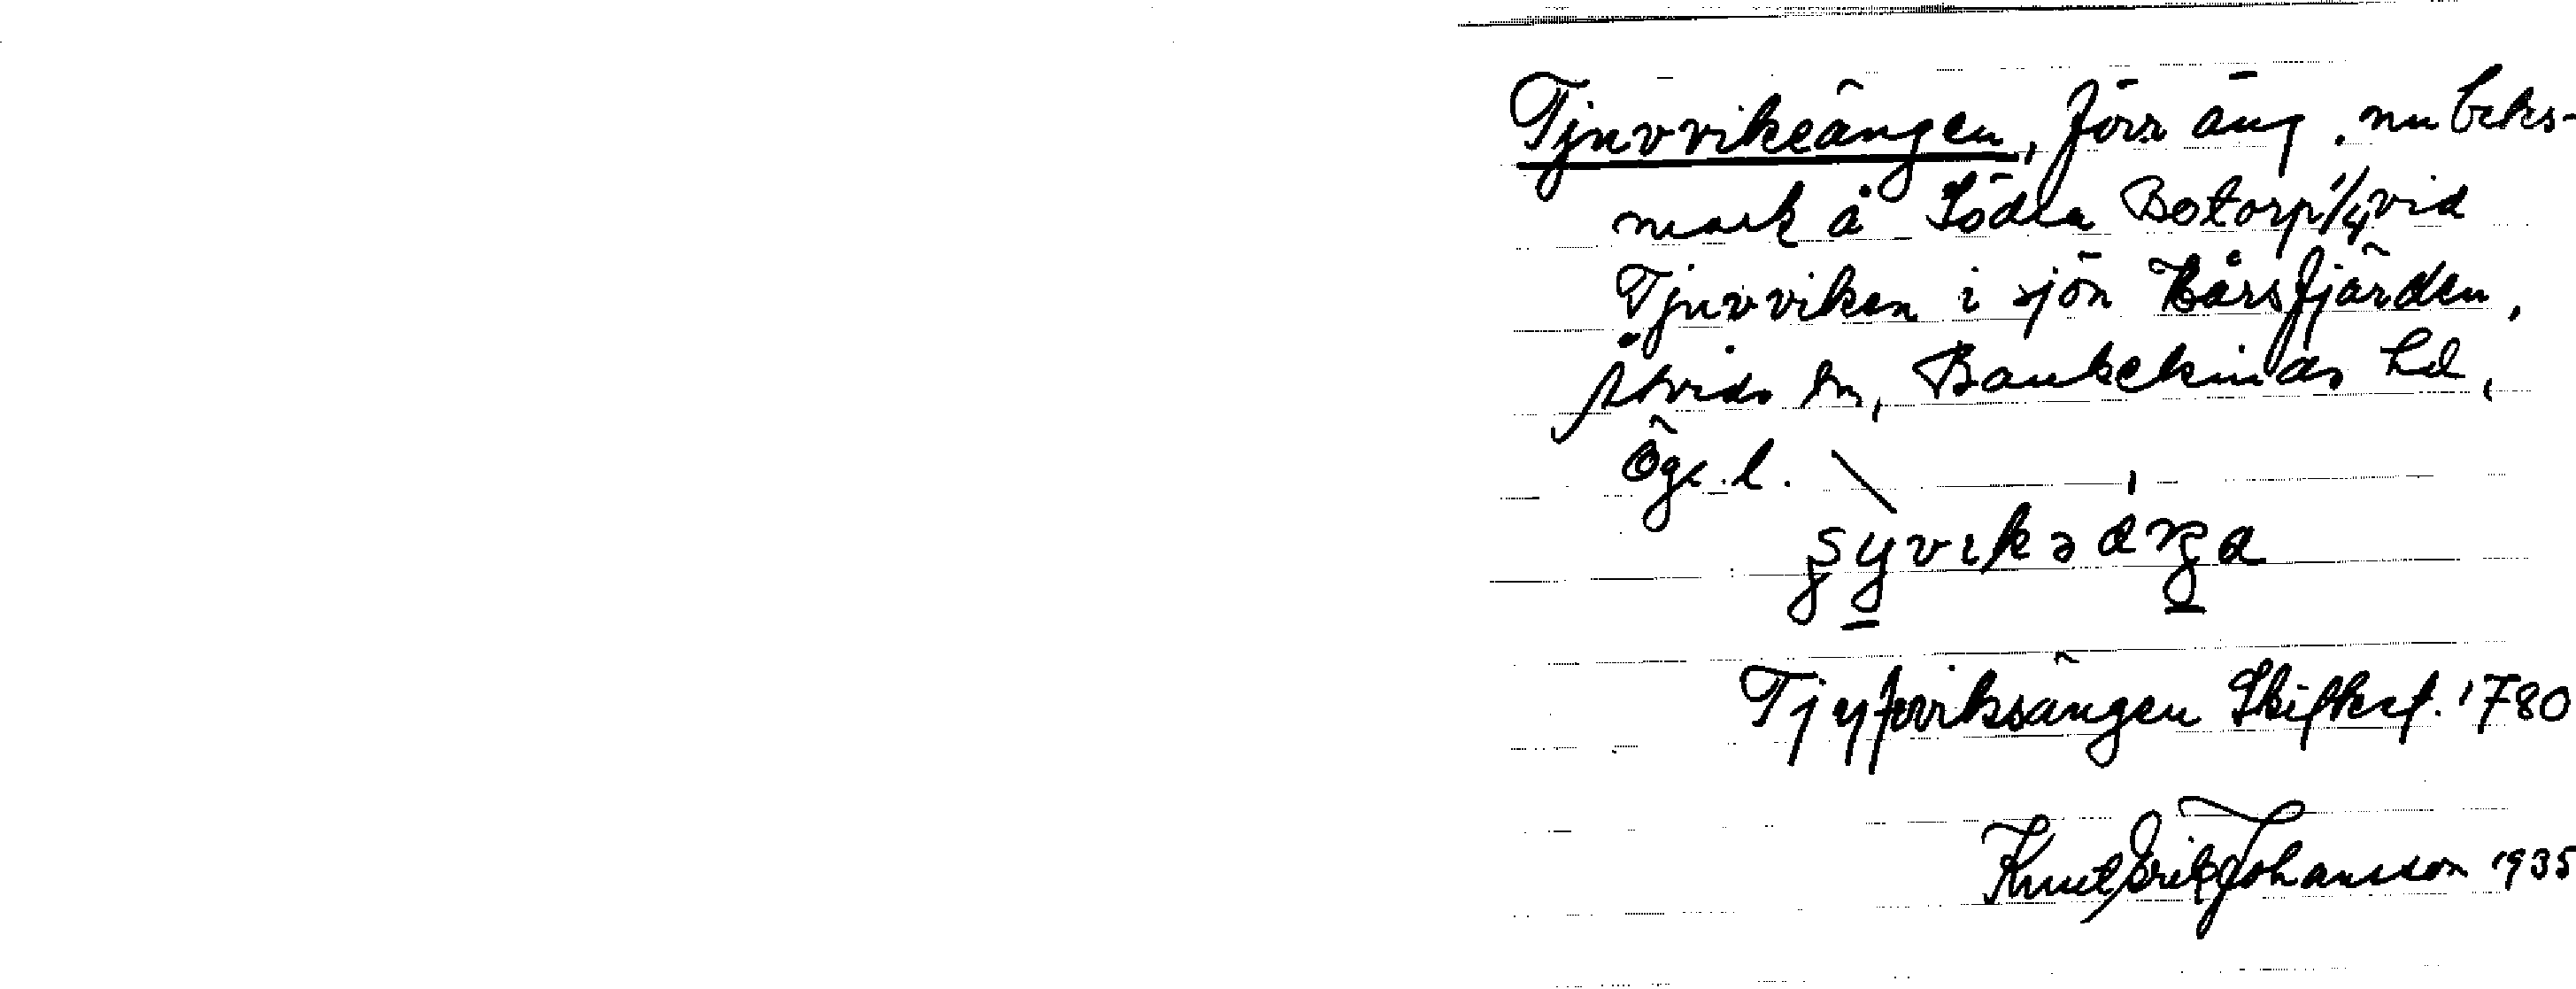 Tjuvvikeängen, förr äng, nu betes-
mark å Södra Botorp 1/4 vid
Tjuvviken i sjön Bårsfjärden,
Åtvids sn, Bankekinds hd,
Ög. l.
Tjyfwiksängen Skifksf. 1780
Knut Erik Johansson 1935